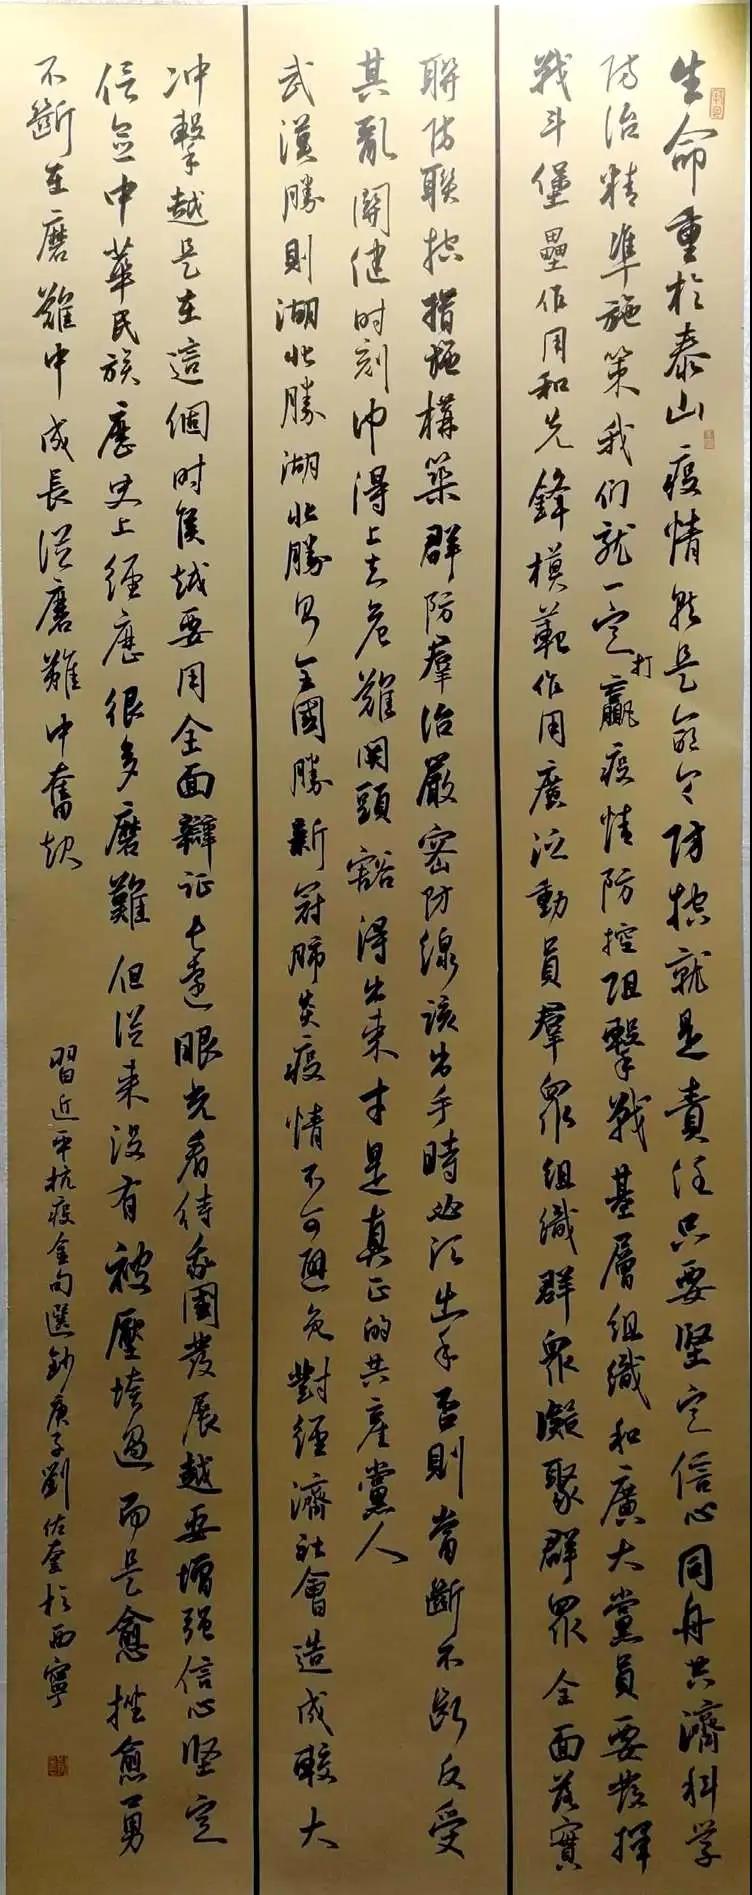 生命重於泰山疫情就是命令防控就是責任只要堅定信心同舟共濟科学
防治精準施策我们就一定打贏疫情防控阻擊戰基層組織和廣大黨員要發揮
戰斗堡壘作用和先鋒模範作用廣泛動員羣眾組織群眾凝聚群眾全面落實
聯防聯控措施構築群防羣治嚴密防線該出手時必须出手否則當斷不斷反受
其亂關健时刻冲得上去危難関頭豁得出来才是真正的共產黨人
武漢勝則湖北勝湖北勝则全國勝新冠肺炎疫情不可避免對經濟社會造成較大
冲擊越是在這個时候越要用全面辯证长遠眼光看待我國發展越要增强信心坚定
信念中華民族歷史上經歷很多磨難但從来沒有被壓垮過而是愈挫愈勇
不斷在磨難中成長從磨難中奮起
習近平抗疫金句選鈔庚子劉佐奎於西寧